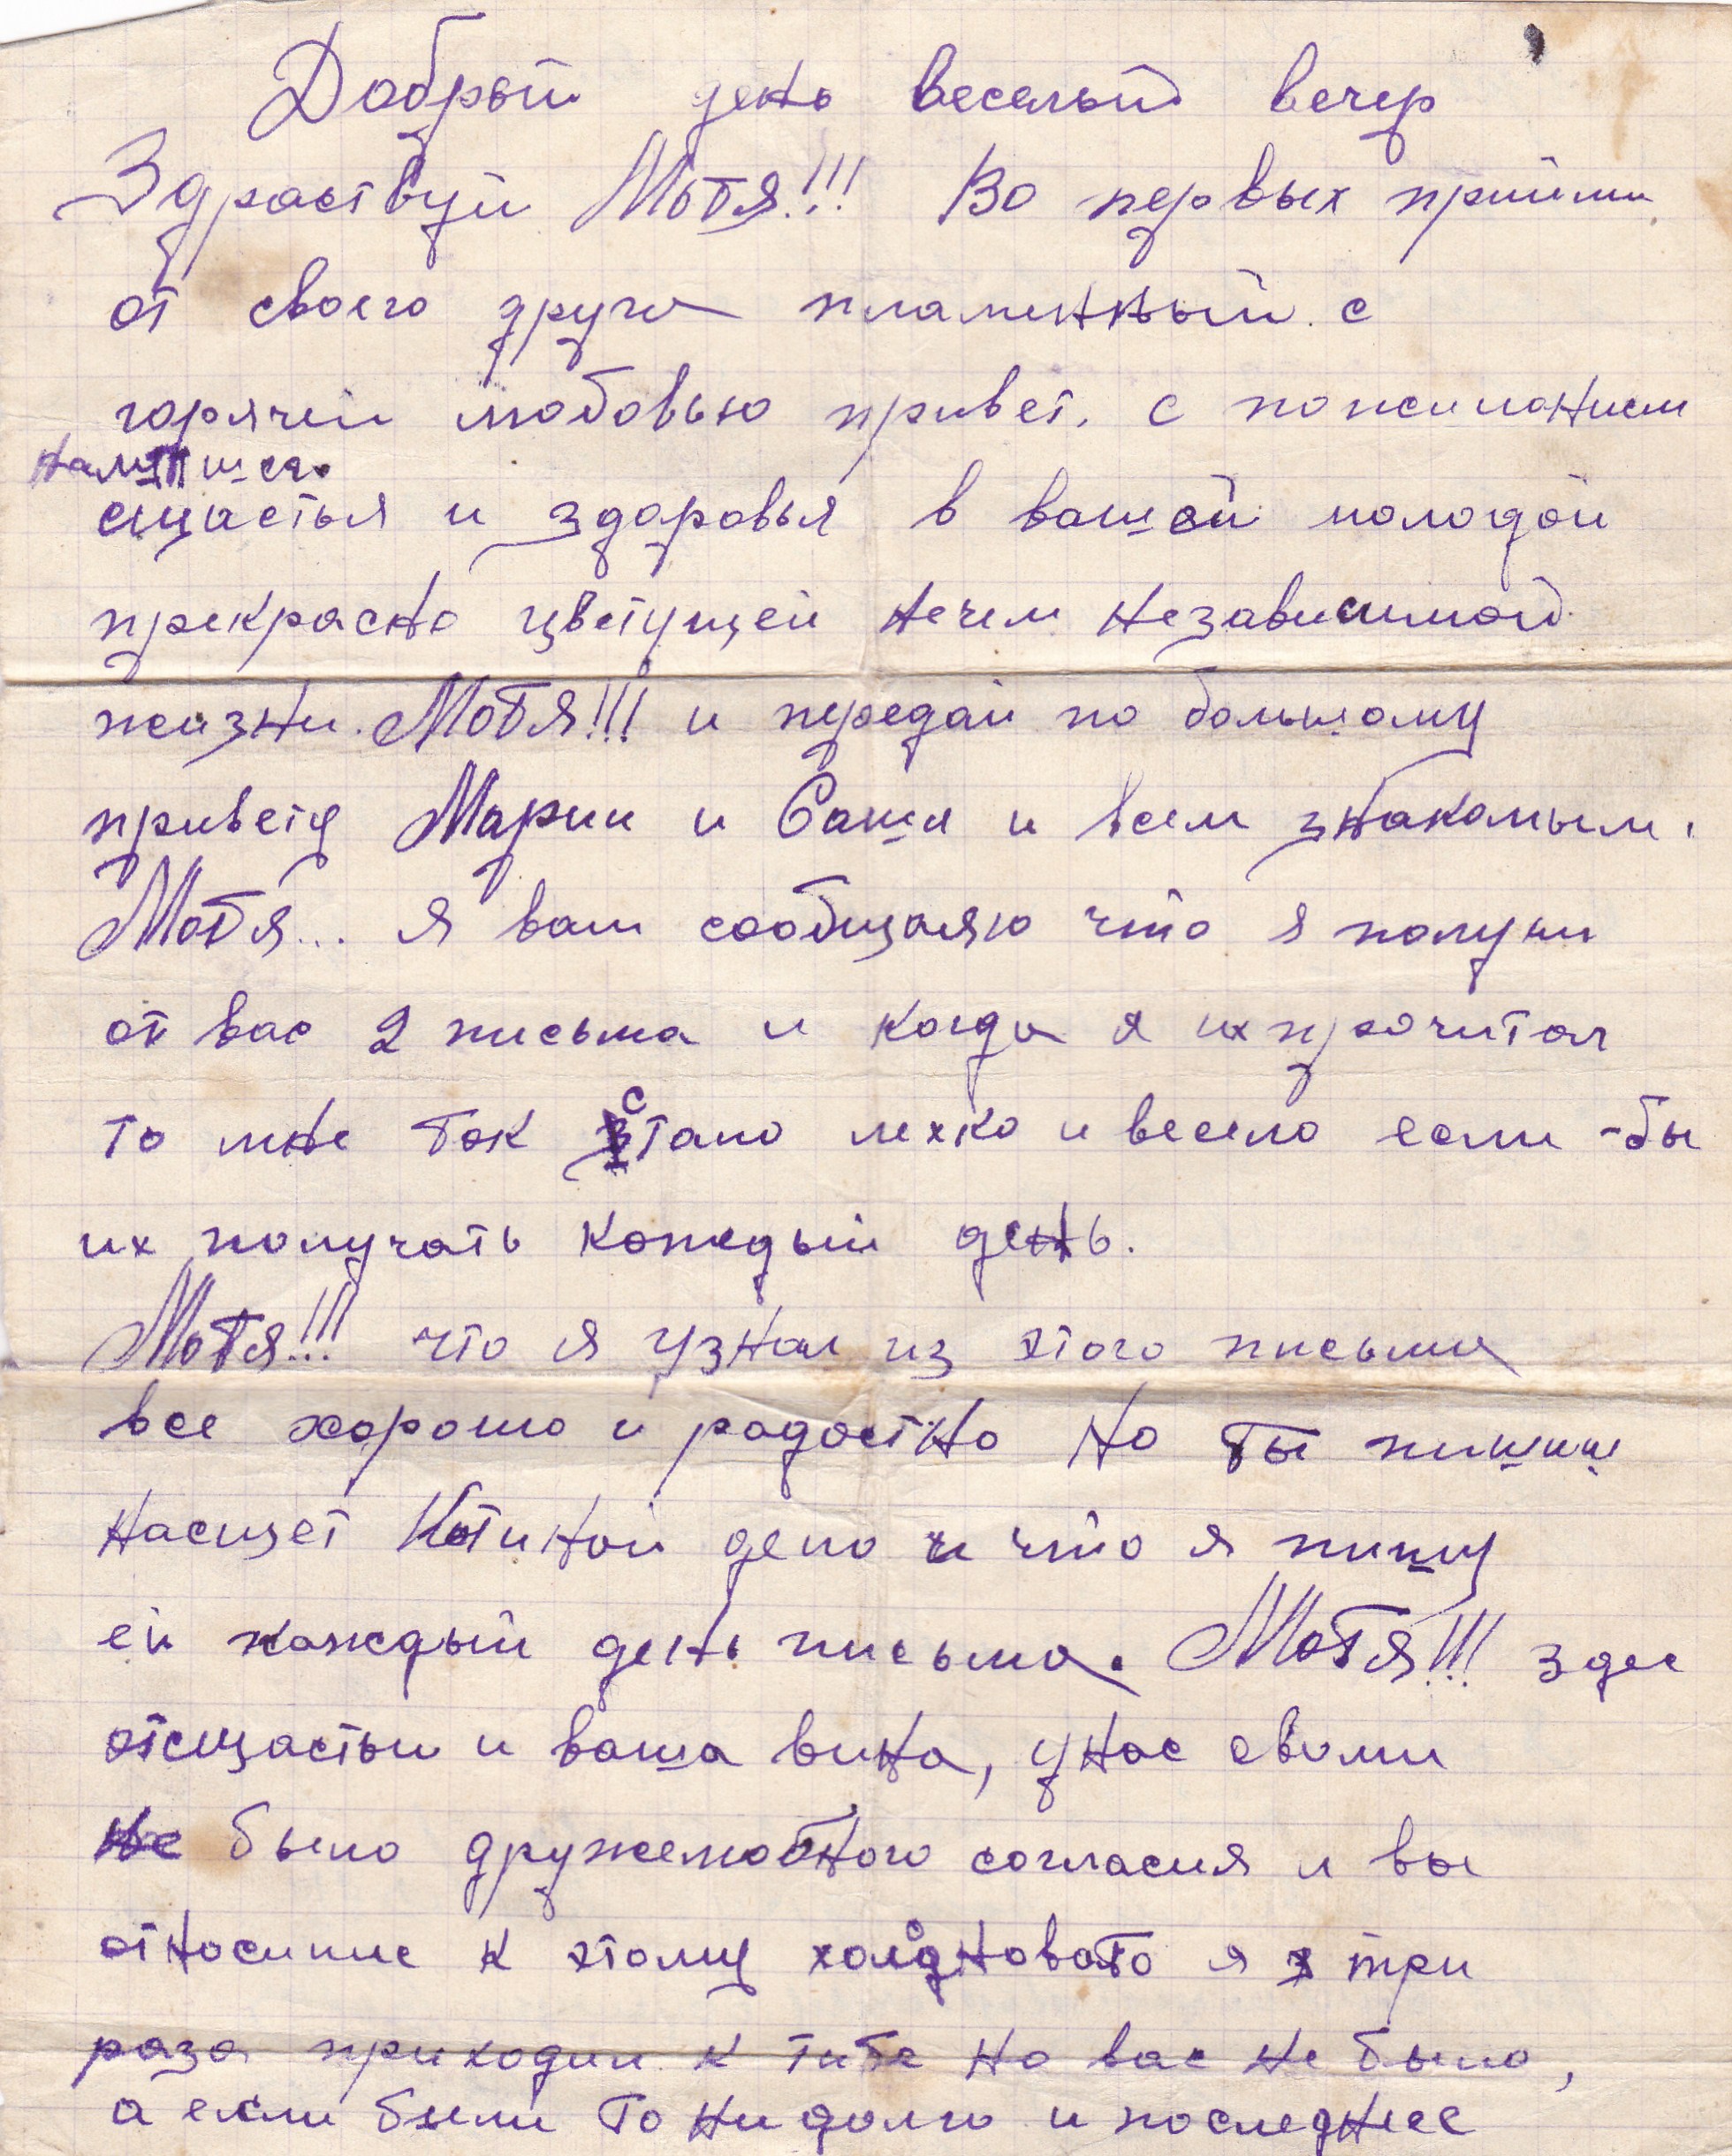 Добрый день веселый вечер
Здраствуй Мотя!!! Во первых прийми
от своего друга пламенный с
горячей любовью привет. с пожиланием
наилутшего
сщастья и здоровья в вашей молодой
прекрасно цветущей нечем независимой
жизни. Мотя!!! и передай по большому
привету Марии и Саши и всем знакомым.
Мотя... я вам сообщаяю что я получи
от вас 2 письма и когда я их прочитал
то мне так стало лехко и весело если -бы
их получать кожедый день.
Мотя!!! что я узнал из этого письма
все хорошо и радостно но ты пишиш
насщет Катиной дела и что я пишу
ей каждый день письма. Мотя!!! здес
отсщасты и ваша вина, унас свами
не было дружелюбного согласия и вы
относилис к этому холодновато я три
раза приходил к тибе но вас не было,
а если были то нидолго и последнее